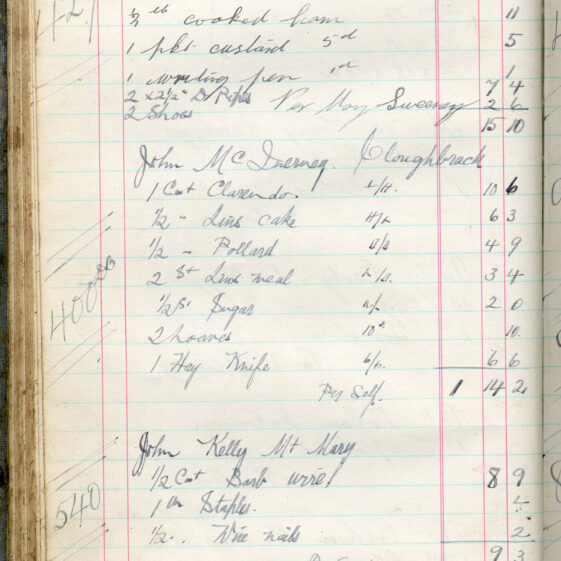 421
½ lb cooked ham 11
1 pkt custard 5d 5
1 writing pen 1d 1
7 4
2 x 2½" D Pipes Per May Sweeney 2 6
2 Shoes 15 10
John McInerney. Cloughbrack
1 Cwt Clarendo. 10 6
½ " Lins cake 6 3
½ - Pollard 4 9
400 DB
2 St Lins meal 3 4
½ St Sugar 2 0
2 Loaves 10d 10.
1 Hay Knife 6/6. 6 6
Per Self. 1 14 2
John Kelly Mt Mary
½ Cwt Barb wire 8 9
540
1 lb Staples.
½ -. Wire nails 2
9 3